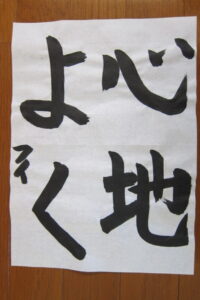 心地
よく